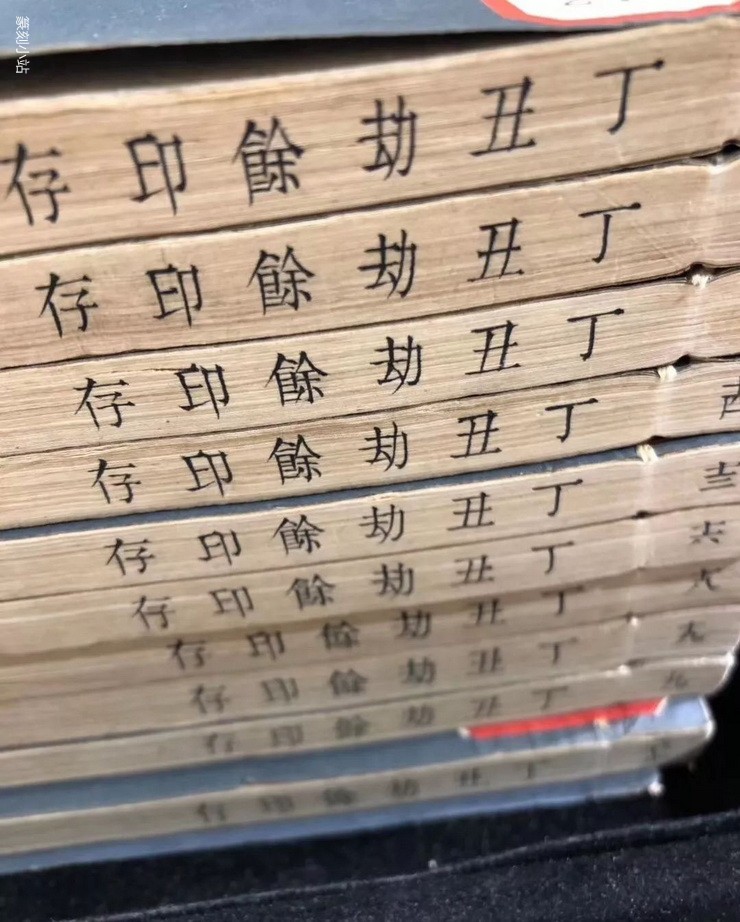 篆刻小站
丁丑劫餘印存
丁丑劫餘印存
丁丑劫餘印存
丁丑劫餘印存
丁丑劫餘印存
丁丑劫餘印存
丁丑劫餘印存
丁丑劫餘印存
丁丑劫餘印存
丁丑劫餘印存